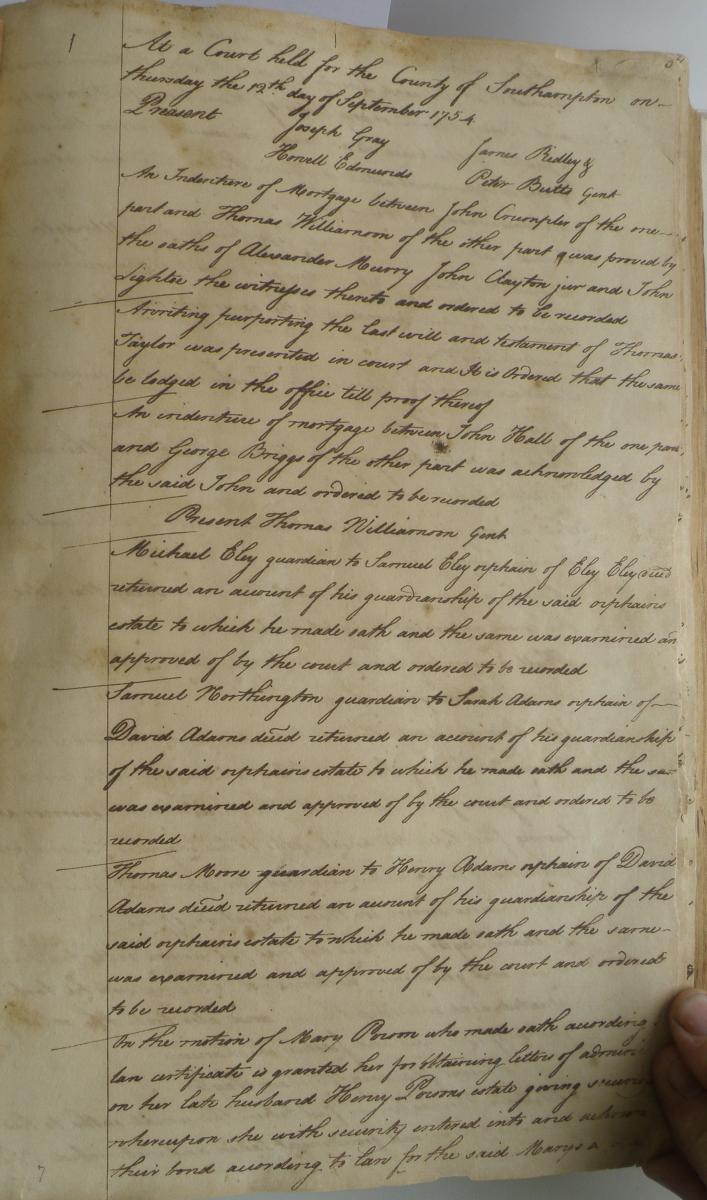 1
At a Court held for the County of Southampton on
thursday the 12th day of September 1754
Present Joseph Gray James Ridley &
Howell Edmunds Peter Butts Gent
An Indenture of Mortgage between John Crumpler of the one
part and Thomas Williamson of the other part was proved by
the oaths of Alexander Murry John Clayton jur and John
Lightle the witnesses thereto and ordered to be recorded
A writing purporting the last will and testament of Thomas
Taylor was presented in court and It is Ordered that the same
be lodged in the office till proof thereof
An indenture of mortgage between John Hall of the one part
and George Briggs of the other part was acknowledged by
the said John and ordered to be recorded
Present Thomas Williamson Gent
Michael Eley guardian to Samuel Eley orphain of Eley Eley decd
returned an account of his guardianship of the said orphains
estate to which he made oath and the same was examined an
approved of by the court and ordered to be recorded
Samuel Northington guardian to Sarah Adams orphain of
David Adams decd returned an account of his guardianship
of the said orphains estate to which he made oath and the sa
was examined and approved of by the court and ordered to be
recorded
Thomas Moore guardian to Henry Adams orphain of David
Adams decd returned an account of his guardianship of the
said orphains estate to which he made oath and the same
was examined and approved of by the court and ordered
to be recorded
On the motion of Mary who made oath according
law certificate is granted her for obtaining letters of admini
on her late husband Henry estate giving securi
whereupon she with security entered into and acknow
their bond according to law for the said Marys a
7